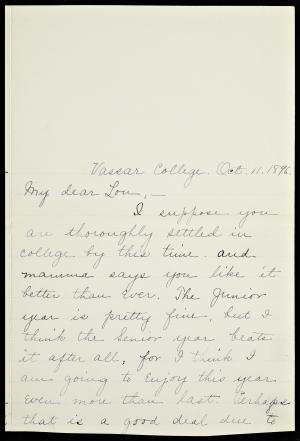 Vassar College. Oct. 11. 1896.
My dear Lou, –
I suppose you
are thoroughly settled in
college by this time. and
mamma says you like it
better than ever. The Junior
year is pretty fine, but I
think the Senior year beats
it after all, for I think I
am going to enjoy this year
even more than last. Perhaps
that is a good deal due to